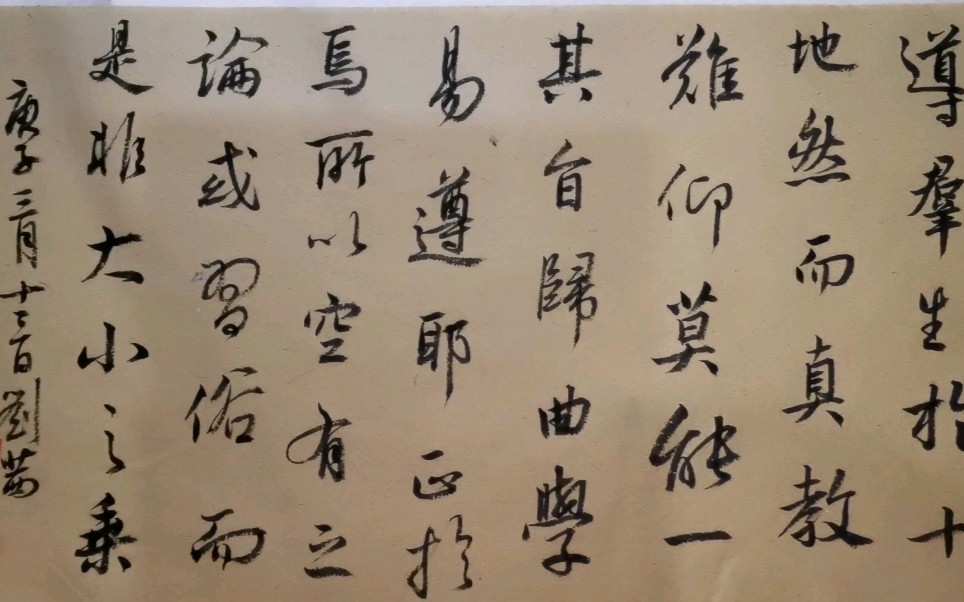 導羣生於十
地然而真教
難仰莫能一
其旨歸曲學
易遵耶正於
焉所以空有之
論或習俗而
是非大小之乘
庚子三月十二日劉